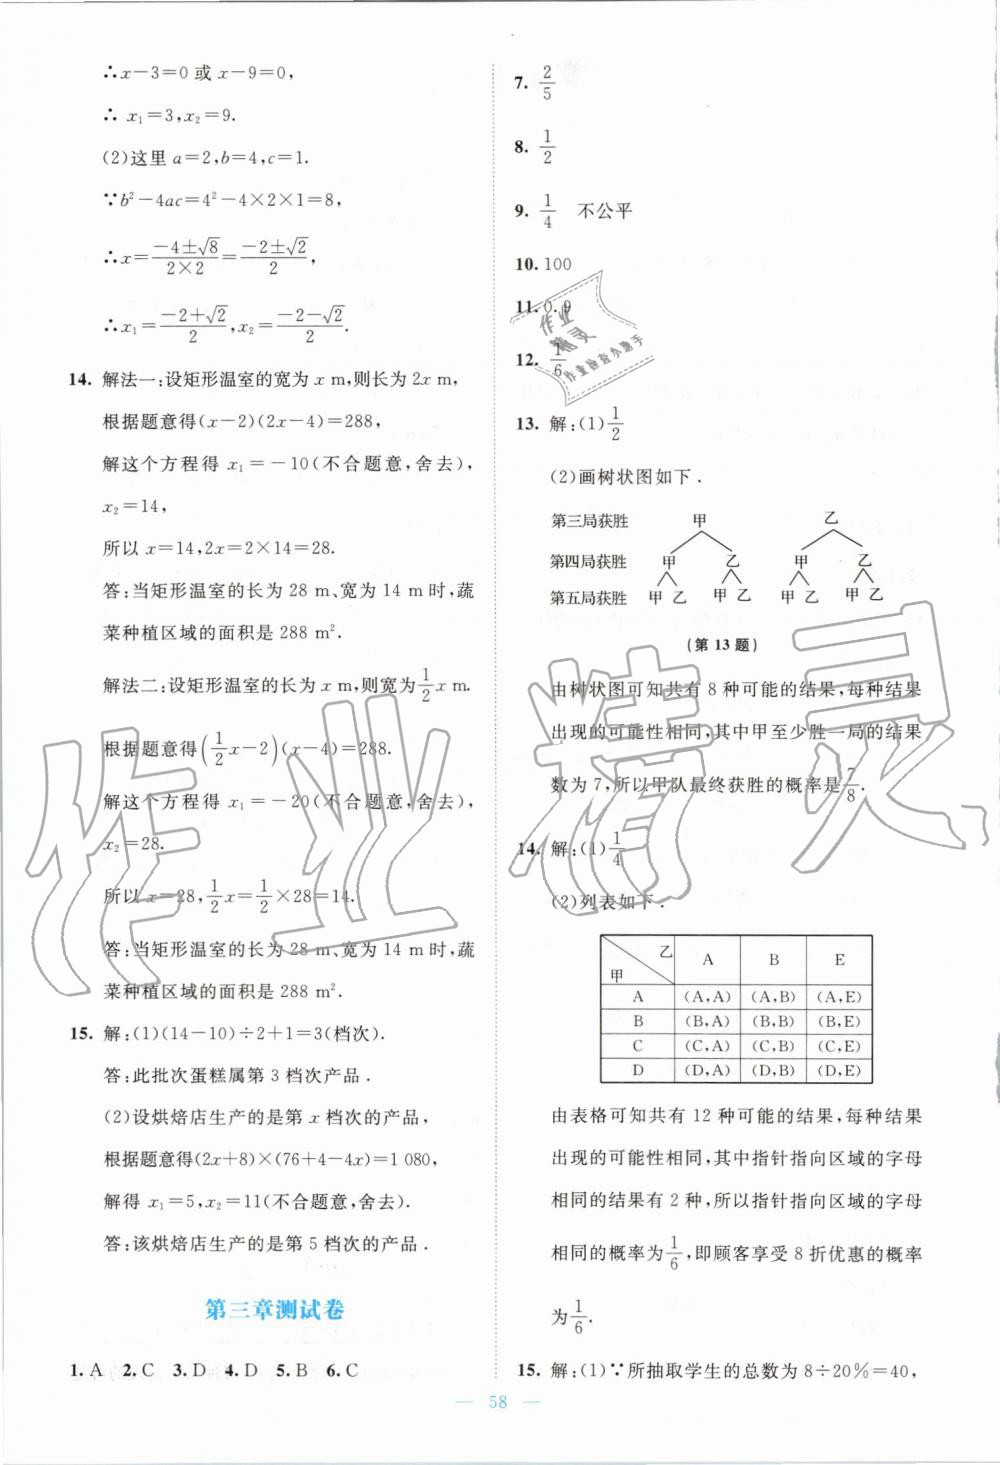 ∴x－3＝0 或 x－9＝0，
∴ x₁＝3，x₂＝9．
(2)这里 a＝2，b＝4，c＝1．
∵b²－4ac＝4²－4×2×1＝8，
∴x＝(－4±√8)/(2×2)＝(－2±√2)/2，
∴x₁＝(－2＋√2)/2，x₂＝(－2－√2)/2．
14. 解法一：设矩形温室的宽为 x m，则长为 2x m，
根据题意得(x－2)(2x－4)＝288，
解这个方程得 x₁＝－10(不合题意，舍去)，
x₂＝14，
所以 x＝14，2x＝2×14＝28．
答：当矩形温室的长为 28 m、宽为 14 m 时，蔬
菜种植区域的面积是 288 m²．
解法二：设矩形温室的长为 x m，则宽为 1/2 x m．
根据题意得(1/2 x－2)(x－4)＝288．
解这个方程得 x₁＝－20(不合题意，舍去)，
x₂＝28．
所以 x＝28，1/2 x＝1/2×28＝14．
答：当矩形温室的长为 28 m、宽为 14 m 时，蔬
菜种植区域的面积是 288 m²．
15. 解：(1)(14－10)÷2＋1＝3(档次)．
答：此批次蛋糕属第 3 档次产品．
(2)设烘焙店生产的是第 x 档次的产品，
根据题意得(2x＋8)×(76＋4－4x)＝1 080，
解得 x₁＝5，x₂＝11(不合题意，舍去)．
答：该烘焙店生产的是第 5 档次的产品．
第三章测试卷
1. A 2. C 3. D 4. D 5. B 6. C
7. 2/5
8. 1/2
9. 1/4 不公平
10. 100
11. 0.9
12. 1/6
13. 解：(1)1/2
(2)画树状图如下．
第三局获胜 甲 乙
第四局获胜 甲 乙 甲 乙
第五局获胜 甲 乙 甲 乙 甲 乙 甲 乙
(第 13 题)
由树状图可知共有 8 种可能的结果，每种结果
出现的可能性相同，其中甲至少胜一局的结果
数为 7，所以甲队最终获胜的概率是7/8．
14. 解：(1)1/4
(2)列表如下．
乙 甲 A B E
A (A,A) (A,B) (A,E)
B (B,A) (B,B) (B,E)
C (C,A) (C,B) (C,E)
D (D,A) (D,B) (D,E)
由表格可知共有 12 种可能的结果，每种结果
出现的可能性相同，其中指针指向区域的字母
相同的结果有 2 种，所以指针指向区域的字母
相同的概率为1/6，即顾客享受 8 折优惠的概率
为1/6．
15. 解：(1)∵所抽取学生的总数为 8÷20％＝40，
— 58 —
作业精灵
作业
精灵
作业检查小助手